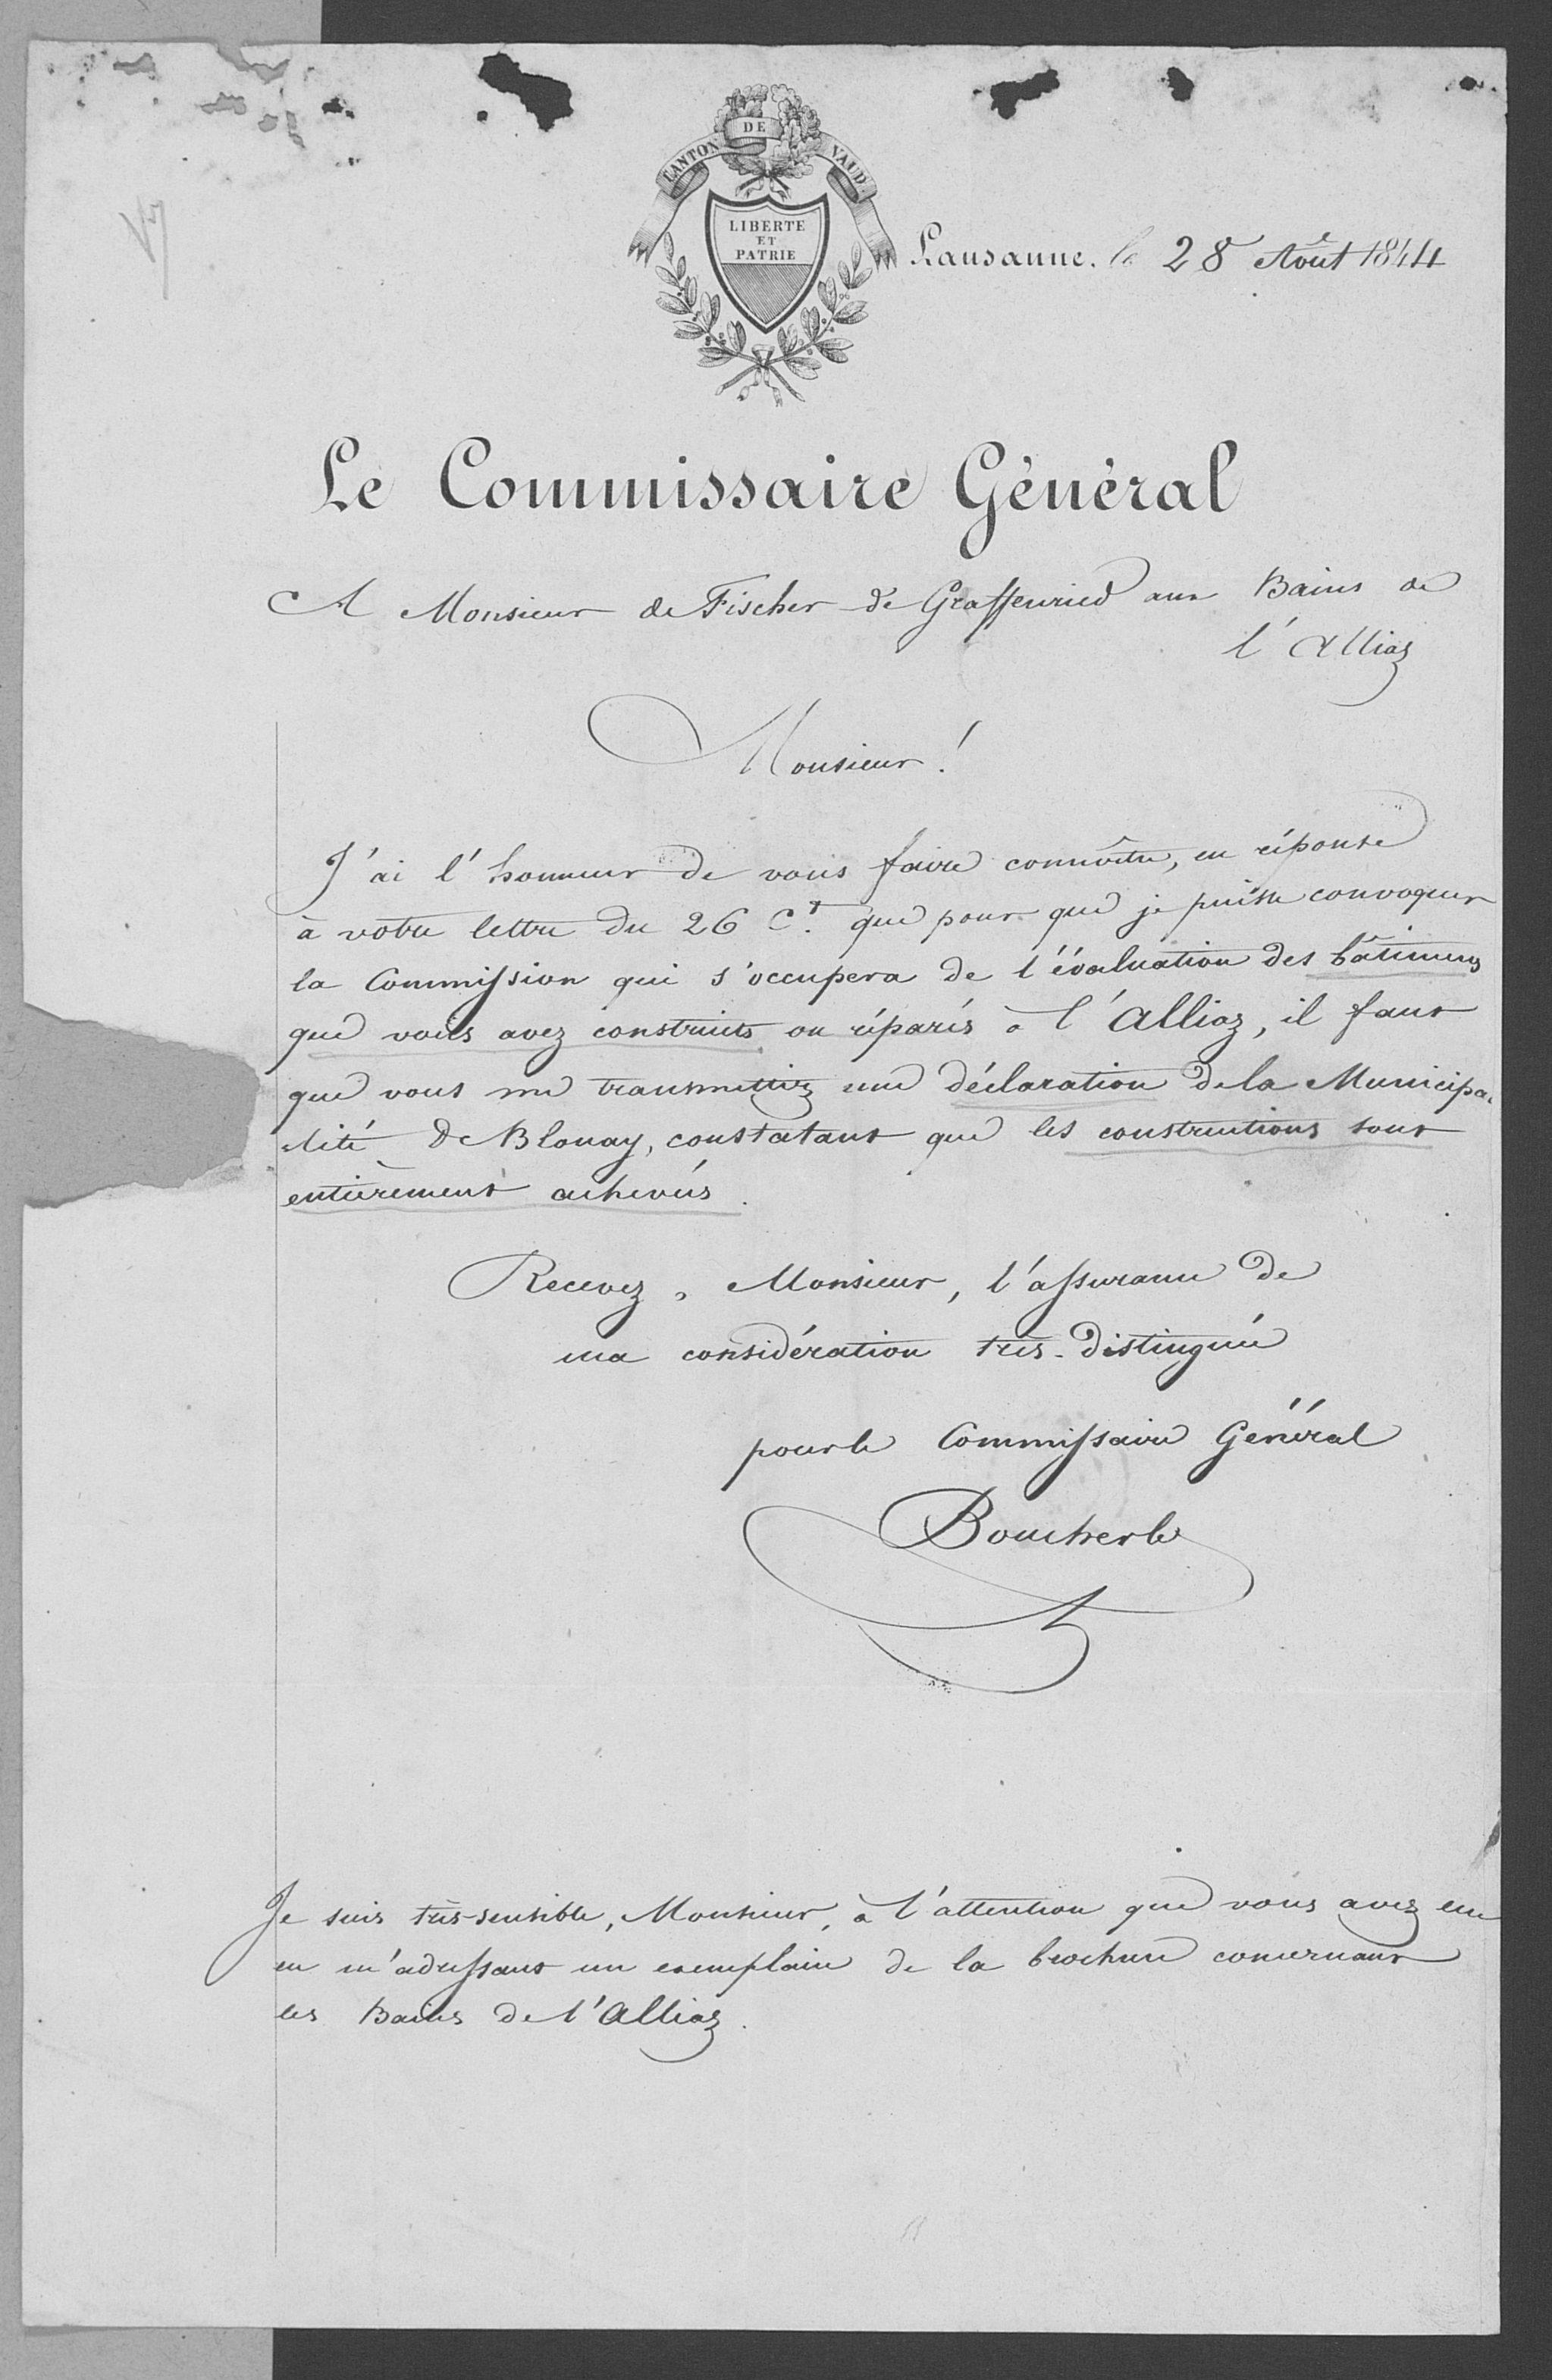 CANTON DE VAUD
LIBERTE
ET
PATRIE
Lausanne. le 28 Août 1844
Le Commissaire Général
A Monsieur de Fischer de Graffenried aux Bains de
l'Alliaz
Monsieur!
J'ai l'honneur de vous faire connoître, en réponse
à votre lettre du 26 Ct. que pour que je puisse convoquer
la Commission qui s'occupera de l'évaluation des bâtimens
que vous avez construits ou réparés à l'Alliaz, il faut
que vous me transmettiez une déclaration de la Municipa-
lité de Blonay, constatant que les constructions sont
entièrement achevés.
Recevez, Monsieur, l'assurance de
ma considération très-distinguée
pour le Commissaire Général
Boucherle
Je suis très-sensible, Monsieur, à l'attention que vous avez eue
en m'adressant un exemplaire de la brochure concernant
les Bains de l'Alliaz.